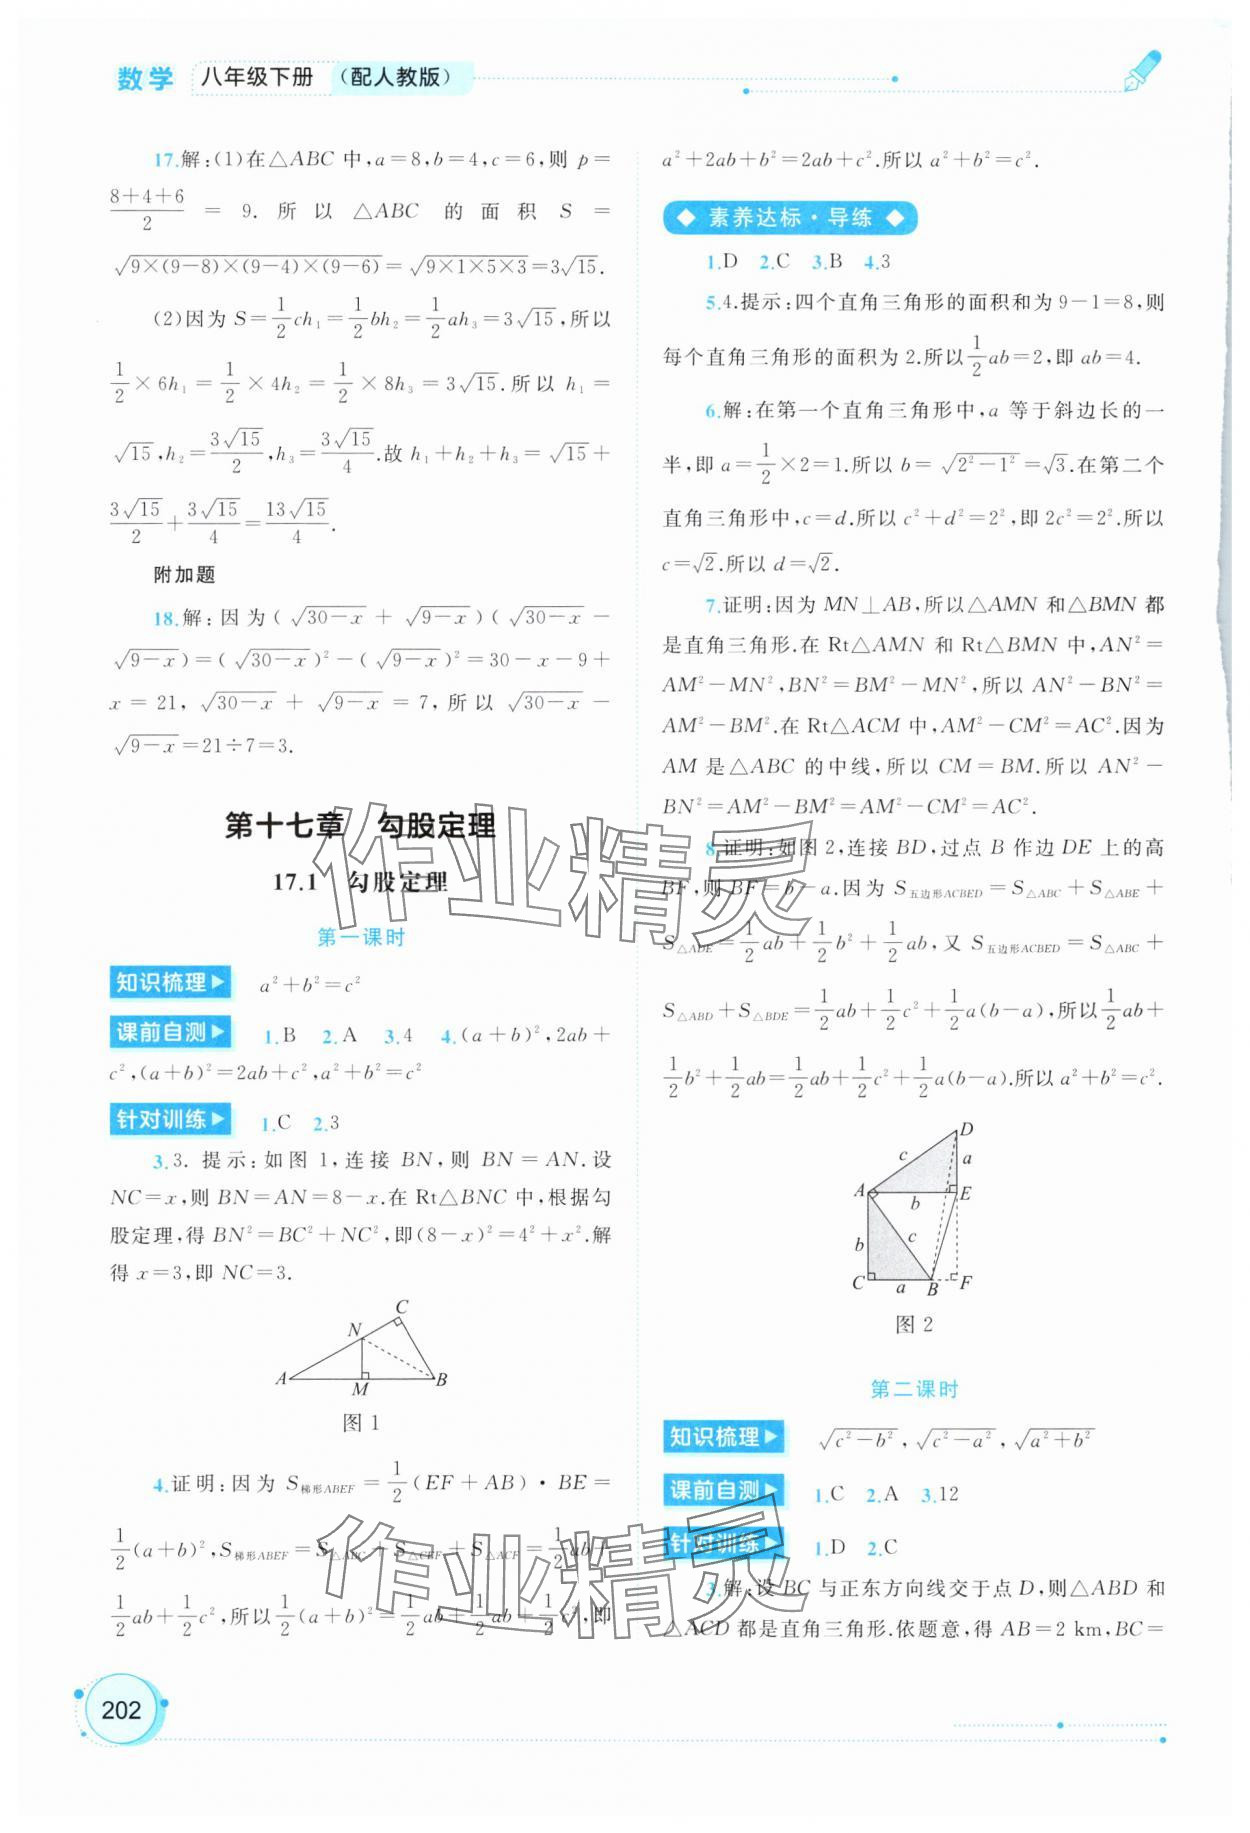 数学 八年级下册 (配人教版)
17.解:(1)在△ABC中,a=8,b=4,c=6,则 p=
\frac{8+4+6}{2}=9.所以△ABC的面积S=
\sqrt{9×(9-8)×(9-4)×(9-6)}=\sqrt{9×1×5×3}=3\sqrt{15}.
(2)因为S=\frac{1}{2}ch₁=\frac{1}{2}bh₂=\frac{1}{2}ah₃=3\sqrt{15},所以
\frac{1}{2}×6h₁=\frac{1}{2}×4h₂=\frac{1}{2}×8h₃=3\sqrt{15}.所以h₁=
\sqrt{15},h₂=\frac{3\sqrt{15}}{2},h₃=\frac{3\sqrt{15}}{4}.故h₁+h₂+h₃=\sqrt{15}+
\frac{3\sqrt{15}}{2}+\frac{3\sqrt{15}}{4}=\frac{13\sqrt{15}}{4}.
附加题
18.解:因为(\sqrt{30-x}+\sqrt{9-x})(\sqrt{30-x}-
\sqrt{9-x})=(\sqrt{30-x})²-(\sqrt{9-x})²=30-x-9+
x=21,\sqrt{30-x}+\sqrt{9-x}=7,所以\sqrt{30-x}-
\sqrt{9-x}=21÷7=3.
第十七章 勾股定理
17.1 勾股定理
第一课时
知识梳理 a²+b²=c²
课前自测 1.B 2.A 3.4 4.(a+b)²,2ab+
c²,(a+b)²=2ab+c²,a²+b²=c²
针对训练 1.C 2.3
3.3. 提示:如图1,连接BN,则BN=AN.设
NC=x,则BN=AN=8-x.在Rt△BNC中,根据勾
股定理,得BN²=BC²+NC²,即(8-x)²=4²+x².解
得x=3,即NC=3.
C
N
A M B
图1
4.证明:因为S梯形ABEF=\frac{1}{2}(EF+AB)·BE=
\frac{1}{2}(a+b)²,S梯形ABEF=S△ABC+S△CEF+S△ACF=\frac{1}{2}ab+
\frac{1}{2}ab+\frac{1}{2}c²,所以\frac{1}{2}(a+b)²=\frac{1}{2}ab+\frac{1}{2}ab+\frac{1}{2}c²,即
202
a²+2ab+b²=2ab+c².所以a²+b²=c².
素养达标·导练
1.D 2.C 3.B 4.3
5.4.提示:四个直角三角形的面积和为9-1=8,则
每个直角三角形的面积为2.所以\frac{1}{2}ab=2,即ab=4.
6.解:在第一个直角三角形中,a等于斜边长的一
半,即a=\frac{1}{2}×2=1.所以b=\sqrt{2²-1²}=\sqrt{3}.在第二个
直角三角形中,c=d.所以c²+d²=2²,即2c²=2².所以
c=\sqrt{2}.所以d=\sqrt{2}.
7.证明:因为MN⊥AB,所以△AMN和△BMN都
是直角三角形.在Rt△AMN和Rt△BMN中,AN²=
AM²-MN²,BN²=BM²-MN²,所以AN²-BN²=
AM²-BM².在Rt△ACM中,AM²-CM²=AC².因为
AM是△ABC的中线,所以CM=BM.所以AN²-
BN²=AM²-BM²=AM²-CM²=AC².
8.证明:如图2,连接BD,过点B作边DE上的高
BF,则BF=b-a.因为S五边形ACBED=S△ABC+S△ABE+
S△ADE=\frac{1}{2}ab+\frac{1}{2}b²+\frac{1}{2}ab,又S五边形ACBED=S△ABC+
S△ABD+S△BDE=\frac{1}{2}ab+\frac{1}{2}c²+\frac{1}{2}a(b-a),所以\frac{1}{2}ab+
\frac{1}{2}b²+\frac{1}{2}ab=\frac{1}{2}ab+\frac{1}{2}c²+\frac{1}{2}a(b-a).所以a²+b²=c².
D
c a
A b E
b c
C a B F
图2
第二课时
知识梳理 \sqrt{c²-b²},\sqrt{c²-a²},\sqrt{a²+b²}
课前自测 1.C 2.A 3.12
针对训练 1.D 2.C
3.解:设BC与正东方向线交于点D,则△ABD和
△ACD都是直角三角形.依题意,得AB=2 km,BC=
作业精灵
作业精灵